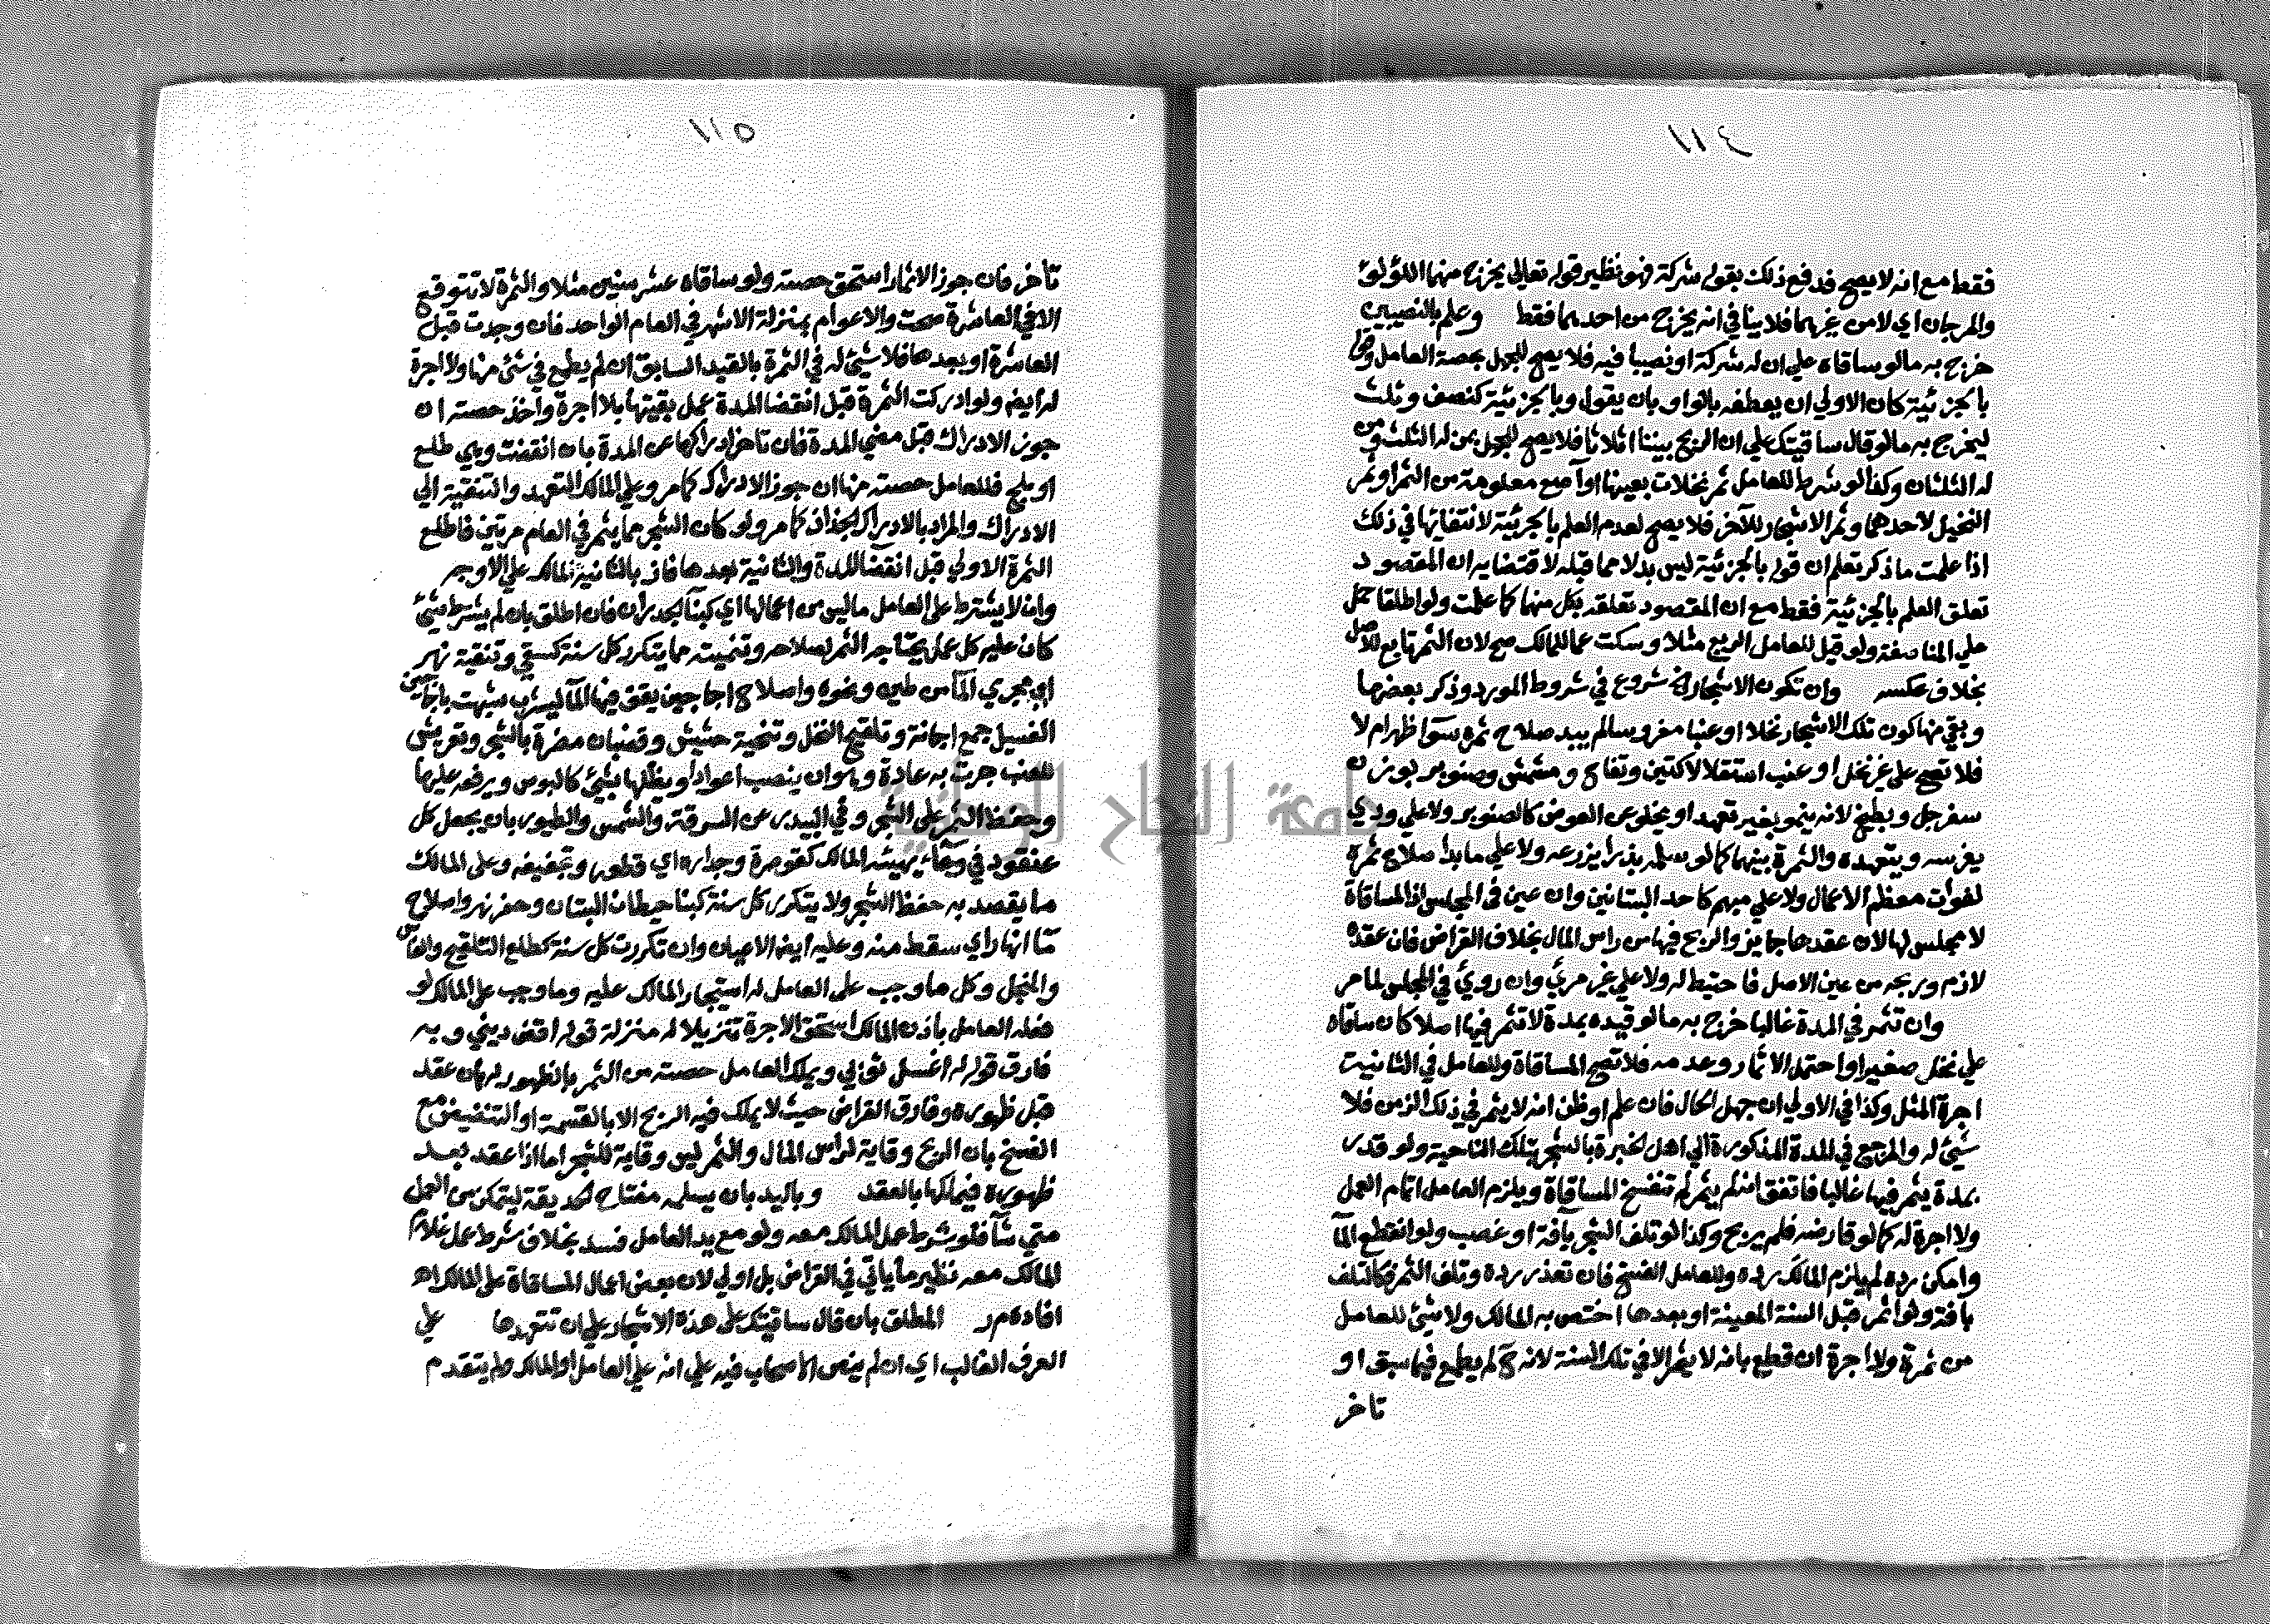 ١١٤
فقط مع انه لا يصح فدفع ذلك بقوله شركة فهو نظير قوله تعالي يخرج منهما اللؤلؤ
والمرجان اي لا من غيرهما فلا ينافي انه يخرج من احدهما فقط وعلم بالنصيبين
خرج به ما لو ساقاه علي ان له شركة او نصيبا فيه فلا يصح للجهل بحصة العامل
بالجزئية كان الاولي ان يعطفه بالواو بان يقول وبالجزئية كنصف وثلث
ليخرج به ما لو قال ساقيتك علي ان الربح بيننا اثلاثا فلا يصح للجهل بمن له الثلث ومن
له الثلثان وكذا لو شرط للعامل ثمر نخلات بعينها او آصع معلومة من الثمر او ثمر
النخيل لاحدهما وثمر الاشجار للآخر فلا يصح لعدم العلم بالجزئية لانتفائها في ذلك
اذا علمت ما ذكر تعلم ان قوله بالجزئية ليس بدلا مما قبله لاقتضايه ان المقصود
تعلق العلم بالجزئية فقط مع ان المقصود تعلقه بكل منهما كما علمت ولو اطلقا حمل
علي المناصفة ولو قيل للعامل الربع مثلا وسكت عما للمالك صح لان الثمر تابع للاصل
بخلاف عكسه وان تكون الاشجار الخ شروع في شروط المورد وذكر بعضها
وبقي منها كون تلك الاشجار نخلا او عنبا مغروسا لم يبد صلاح ثمره سوآ ظهر ام لا
فلا تصح علي غير نخل او عنب استقلالا كتين وتفاح ومشمش وصنوبر بوزن
سفرجل وبطيخ لانه ينمو بغير تعهد او يخلو عن العوض كالصنوبر ولا علي ودي
يغرسه ويتعهده والثمرة بينهما كما لو سلمه بذرا يزرعه ولا علي ما بدا صلاح ثمره
لفوات معظم الاعمال ولا علي مبهم كاحد البستانين وان عين في المجلس اذ المساقاة
لا مجلس لها لان عقدها جايز والربح فيها من راس المال بخلاف القراض فان عقده
لازم وربحه من عين الاصل فاحتيط له ولا علي غير مرئي وان روئي في المجلس لما مر
وان تثمر في المدة غالبا خرج به ما لو قيده بمدة لا تثمر فيها اصلا كان ساقاه
علي نخل صغير او احتمل الاثمار وعدمه فلا تصح المساقاة وللعامل في الثانيت
اجرة المثل وكذا في الاولي ان جهل الحال فان علم او ظن انه لا يثمر في ذلك الزمن فلا
شيئ له والمرجع في المدة المذكورة الي اهل الخبرة بالشجر بتلك الناحية ولو قدر
بمدة يثمر فيها غالبا فاتفق انه لم يثمر لم تنفسخ المساقاة ويلزم العامل اتمام العمل
ولا اجرة له كما لو قارضه فلم يربح وكذا لو تلف الشجر بآفة او غصب ولو انقطع المآ
وامكن رده لم يلزم المالك رده وللعامل الفسخ فان تعذر رده وتلف الثمر فكالتلف
بافة ولو اثمر قبل السنة المعينة او بعدها اختص به المالك ولا شيئ للعامل
من ثمرة ولا اجرة ان قطع بانه لا يثمر الا في تلك السنة لانه ح لم يطمع فيما سبق او
تاخر
١١٥
تأخر فان جوز الاثمار استحق حصته ولو ساقاه عشر سنين مثلا والثمرة لا تتوقع
الا في العاشرة صحت والاعوام بمنزلة الاشهر في العام الواحد فان وجدت قبل
العاشرة او بعدها فلا شيئ له في الثمرة بالقيد السابق ان لم يطمع في شئ منها ولا اجرة
له ايضا ولو ادركت الثمرة قبل انقضا المدة عمل بقيتها بلا اجرة واخذ حصته ان
جوز الادراك قبل مضي المدة فان تاخر ادراكها عن المدة بان انقضت وهي طلع
او بلح فللعامل حصته منها ان جوز الادراك كما مر وعلي المالك التعهد والتنقية الي
الادراك والمراد بالادراك الجذاذ كما مر ولو كان الشجر مما يثمر في العام مرتين فاطلع
الثمرة الاولي قبل انقضا المدة والثانية بعدها فاز بالثانية المالك علي الاوجه
وان لا يشترط علي العامل ما ليس من اعمالها اي كبنآ الجدران فان اطلق بان لم يشرط شيئ
كان عليه كل عمل يحتاجه الثمر لصلاحه وتنميته مما يتكرر كل سنة كسقي وتنقية نهر
اي مجري المآ من طين ونحوه واصلاح اجاجين يقف فيها المآ ليشرب شبهت باجاجين
الغسيل جمع اجانة وتلقيح النخل وتنحية حشيش وقضبان مضرة بالشجر وتعريش
للعنب جرت به عادة وهو ان ينصب اعوادا ويظللها بشيئ كالبوص ويرفعه عليها
وحفظ الثمر علي الشجر وفي البيدر عن السرقة والشمس والطيور بان يجعل كل
عنقود في وعآء يهيئه المالك كقوصرة وجداره اي قطوره وتجفيفه وعلي المالك
ما يقصد به حفظ الشجر ولا يتكرر كل سنة كبنا حيطان البستان وحفر نهر واصلاح
مآ انهار اي سقط منه وعليه ايضا الاعيان وان تكررت كل سنة كطلع التلقيح والفاس
والمنجل وكل ما وجب علي العامل له استيجار المالك عليه وما وجب علي المالك لو
فعله العامل باذن المالك استحق الاجرة تنزيلا له منزلة قوله اقض ديني وبه
فارق قوله له اغسل ثوبي ويملك العامل حصته من الثمر بالظهور له ان عقد
قبل ظهوره وفارق القراض حيث لا يملك فيه الربح الا بالقسمة او التنضيض مع
الفسخ بان الربح وقاية لراس المال والثمر ليس وقاية للشجر اما اذا عقد بعد
ظهوره فيملكها بالعقد وباليد بان يسلمه مفتاح الحديقة ليتمكن من العمل
متي شآ فلو شرط عمل المالك معه ولو مع يد العامل فسد بخلاف شرط عمل غلام
المالك معه نظير ما ياتي في القراض بل اولي لان بعض اعمال المساقاة علي المالك اهـ
افاده م ر المطلق بان قال ساقيتك علي هذه الاشجار علي ان تتعهدها علي
العرف الغالب اي ان لم ينص الاصحاب فيه علي انه علي العامل او المالك ولم يتقدم
جامعة النجاح الوطنية